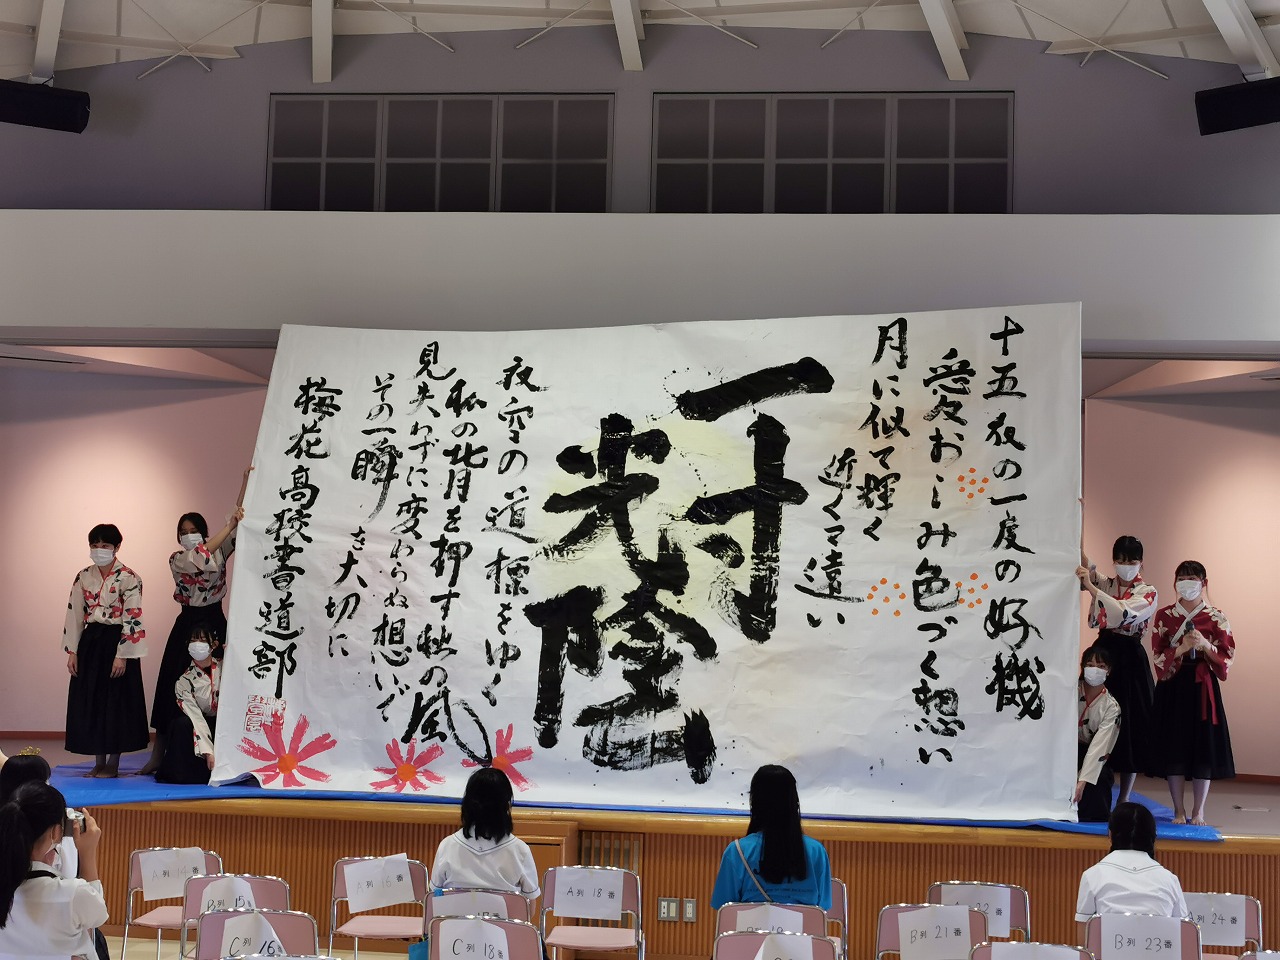 十五夜の一度の好機
愛おしみ色づく想い
月に似て輝く
近くて遠い
一寸
光陰
夜空の道標をゆく
私の背を押す秋の風
見失わずに変わらぬ想いで
その一瞬を大切に
梅花高校書道部
A列 14番
A列 16番
A列 18番
A列 22番
A列 24番
B列 15番
B列 21番
B列 23番
C列 16番
C列 18番